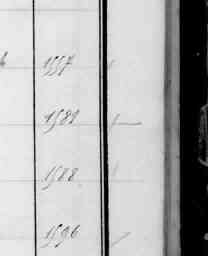 1557
1581
1588
1596